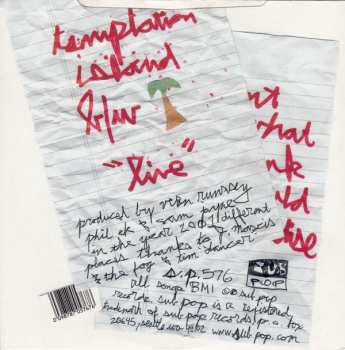 temptation
island
b/w
"live"
produced by
phil ek & sam
in the year 2001 different
places thanks to j mascis
& the fog & tim
s.p. 576
all songs BMI sub pop
records. sub pop is a registered
trademark of sub pop records p.o. box
20645, seattle wa. www.subpop.com
SUB
POP